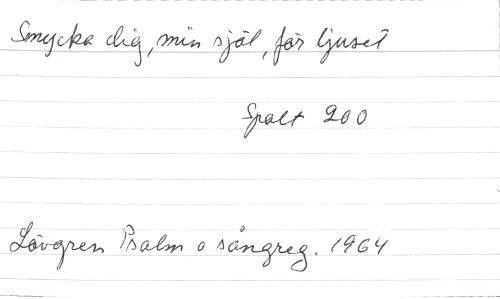 Smycka dig, min själ, för ljuset
Spalt 200
Lövgren Psalm o sångreg. 1964